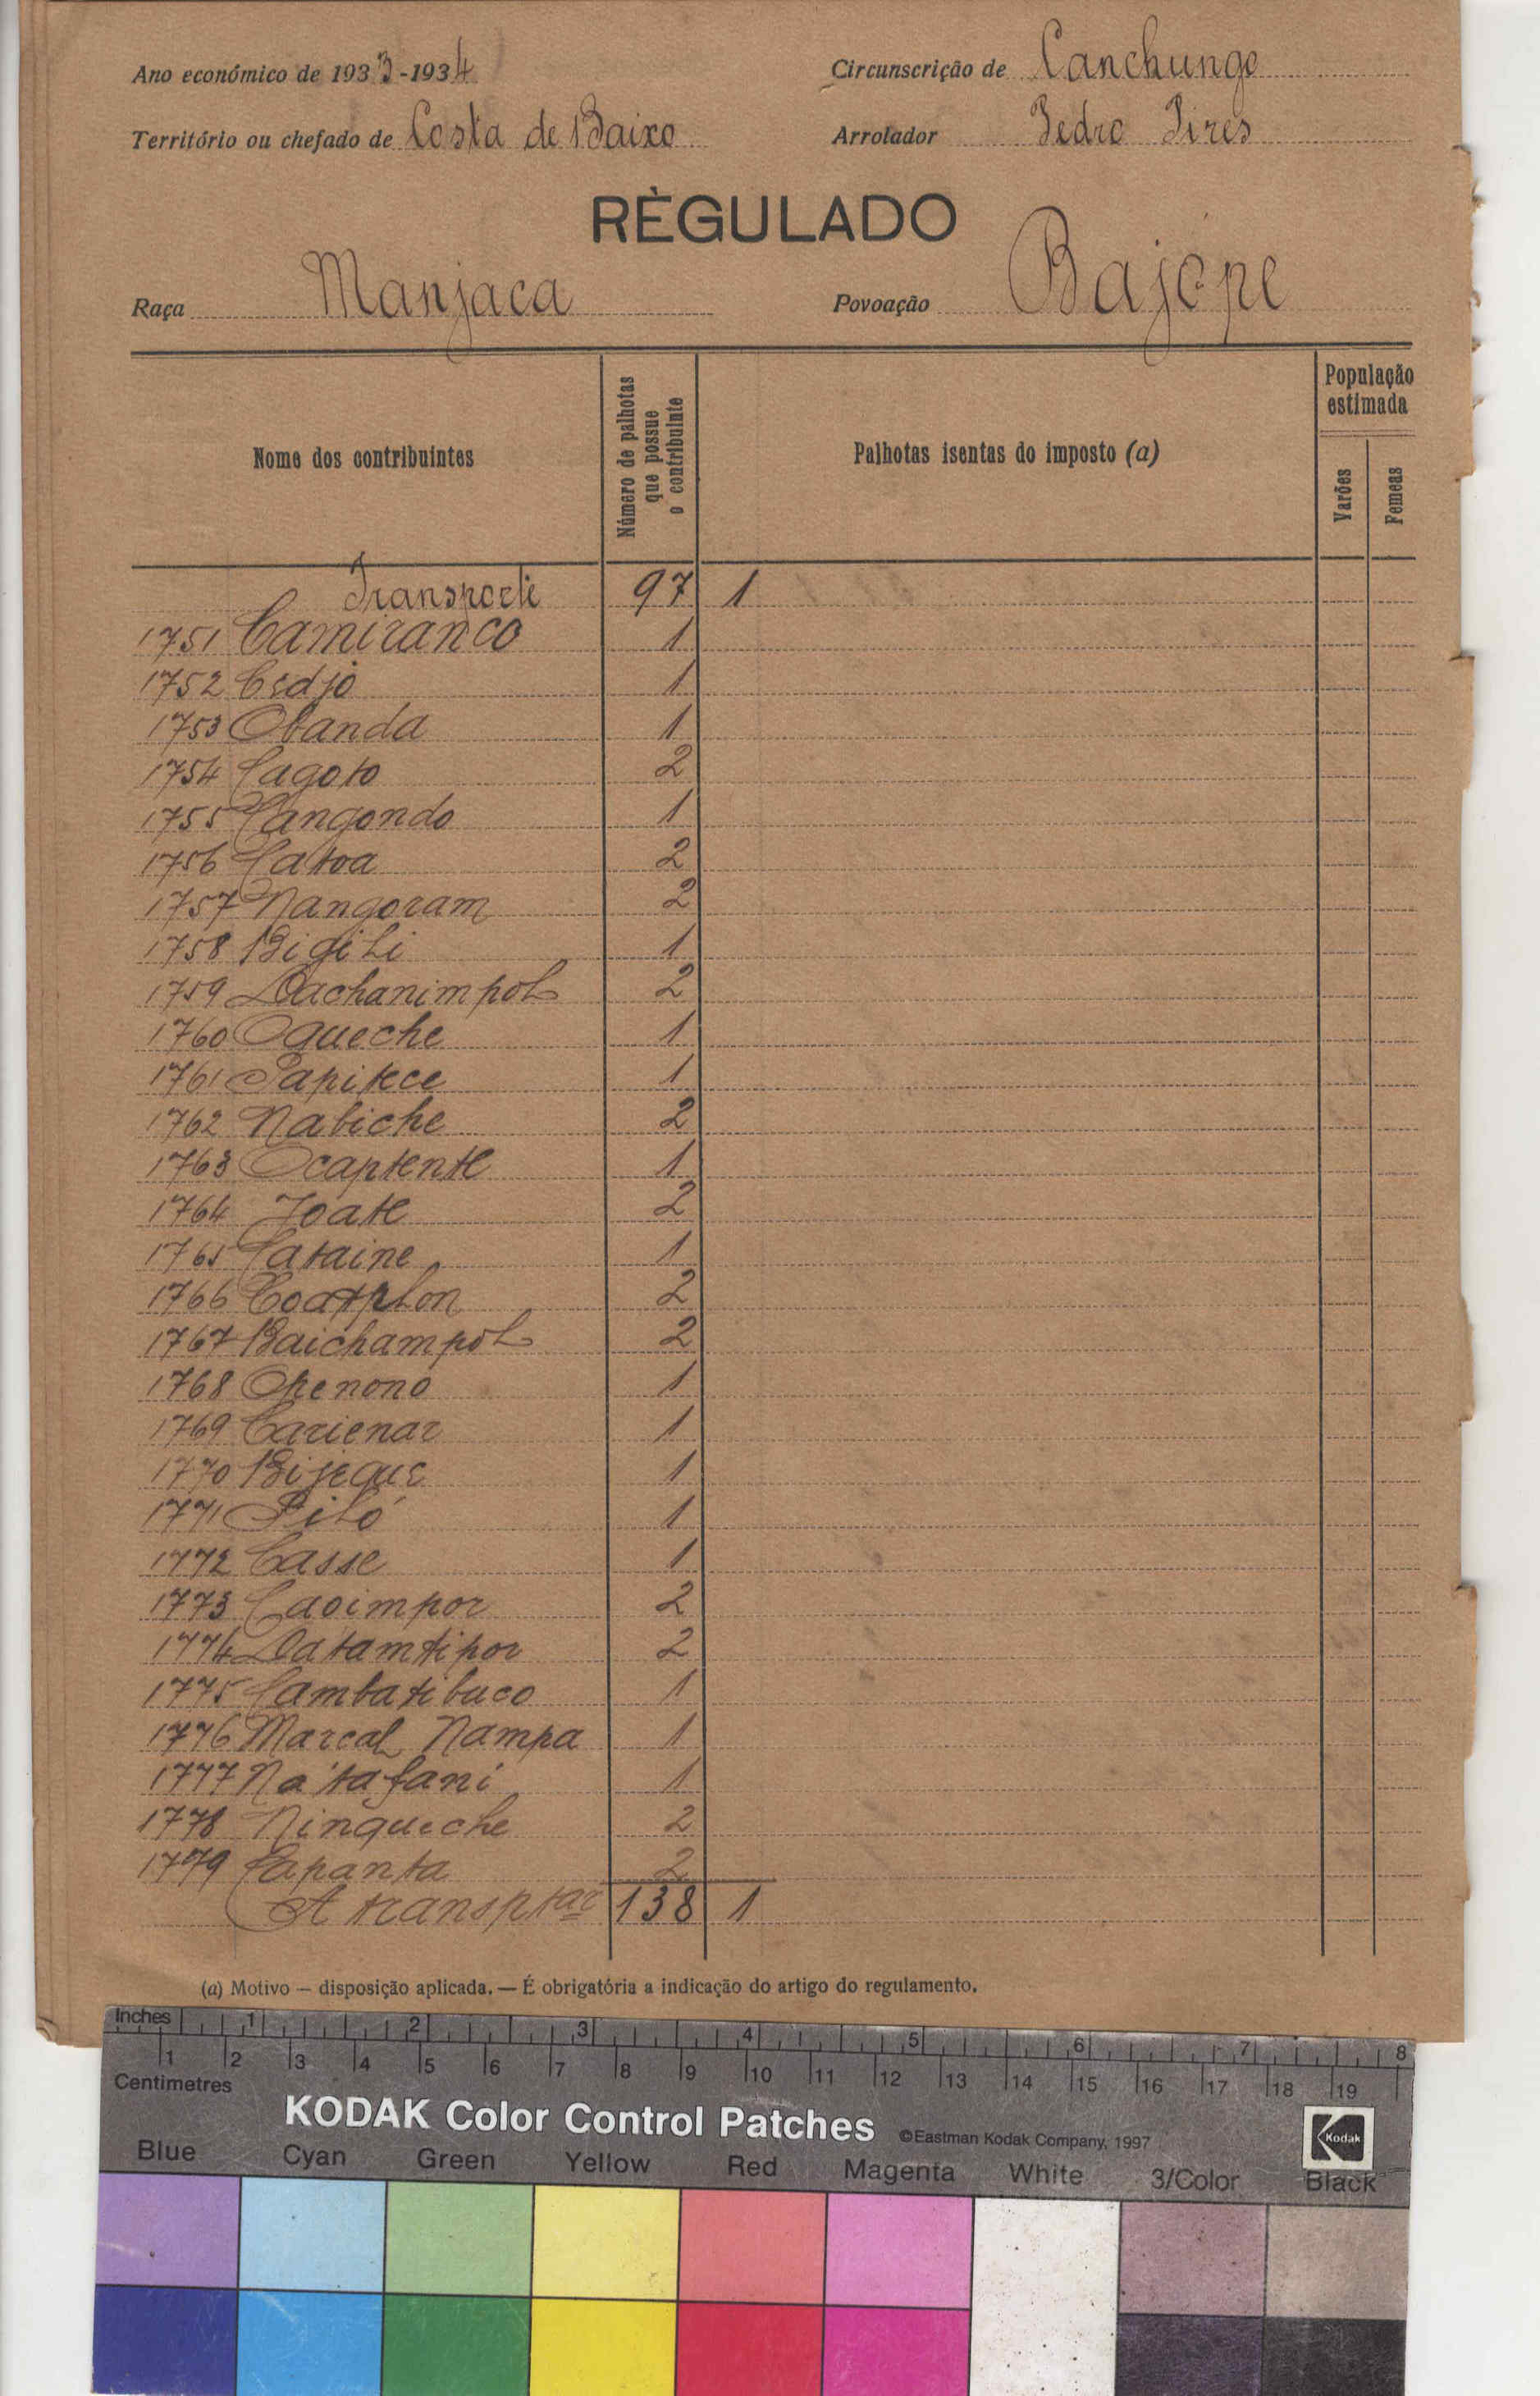 Ano económico de 1933-1934
Circunscrição de Canchungo
Território ou chefado de Costa de Baixo
Arrolador Pedro Pires
RÈGULADO
Raça Manjaca
Povoação Bajope
Nome dos contribuintes
Número de palhotas que possue o contribuinte
Palhotas isentas do imposto (a)
População estimada
Varões
Femeas
Transporte 97 1
1751 Camiranco 1
1752 Cedjo 1
1753 Obanda 1
1754 Cagoto 2
1755 Cangondo 1
1756 Catoa 2
1757 Nangoram 2
1758 Bigili 1
1759 Dachanimpol 2
1760 Oqueche 1
1761 Papitece 1
1762 Nabiche 2
1763 Ocaptente 1
1764 Joate 2
1765 Cataine 1
1766 2
1767 Baichampol 2
1768 Openono 1
1769 Carienar 1
1770 Bijeque 1
1771 Filó 1
1772 Casse 1
1773 Caoimpor 2
1774 Datamtipor 2
1775 Cambatibuco 1
1776 Marcal Nampa 1
1777 Natafani 1
1778 Ninqueche 2
1779 Capanta 2
A transptar 138 1
(a) Motivo — disposição aplicada. — É obrigatória a indicação do artigo do regulamento.
Inches 1 2 3 4 5 6 7 8
1 2 3 4 5 6 7 8 9 10 11 12 13 14 15 16 17 18 19
Centimetres
KODAK Color Control Patches ©Eastman Kodak Company, 1997 Kodak
Blue Cyan Green Yellow Red Magenta White 3/Color Black